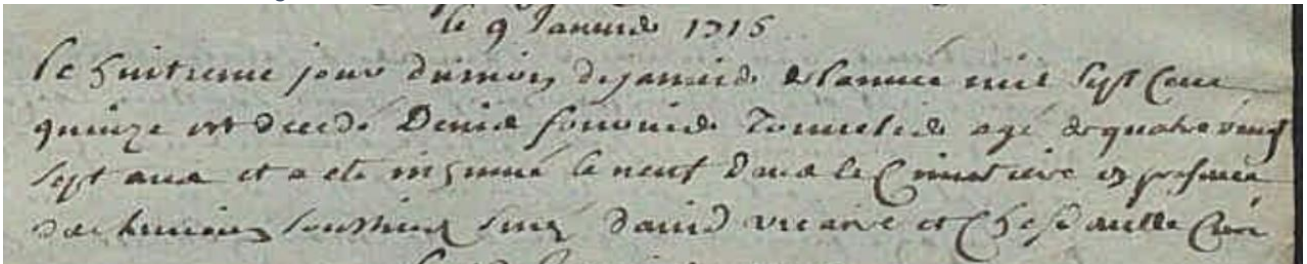 le 9 Janvier 1715
le huitieme jour du mois de janvier de lannee mil sept cens
quinze est decedé Denis tonnelier agé de quatre vingt
sept ans et a eté inhumé le neuf dans le Cimetiere en presence
des temoins soussignes signé David vicaire et Curé